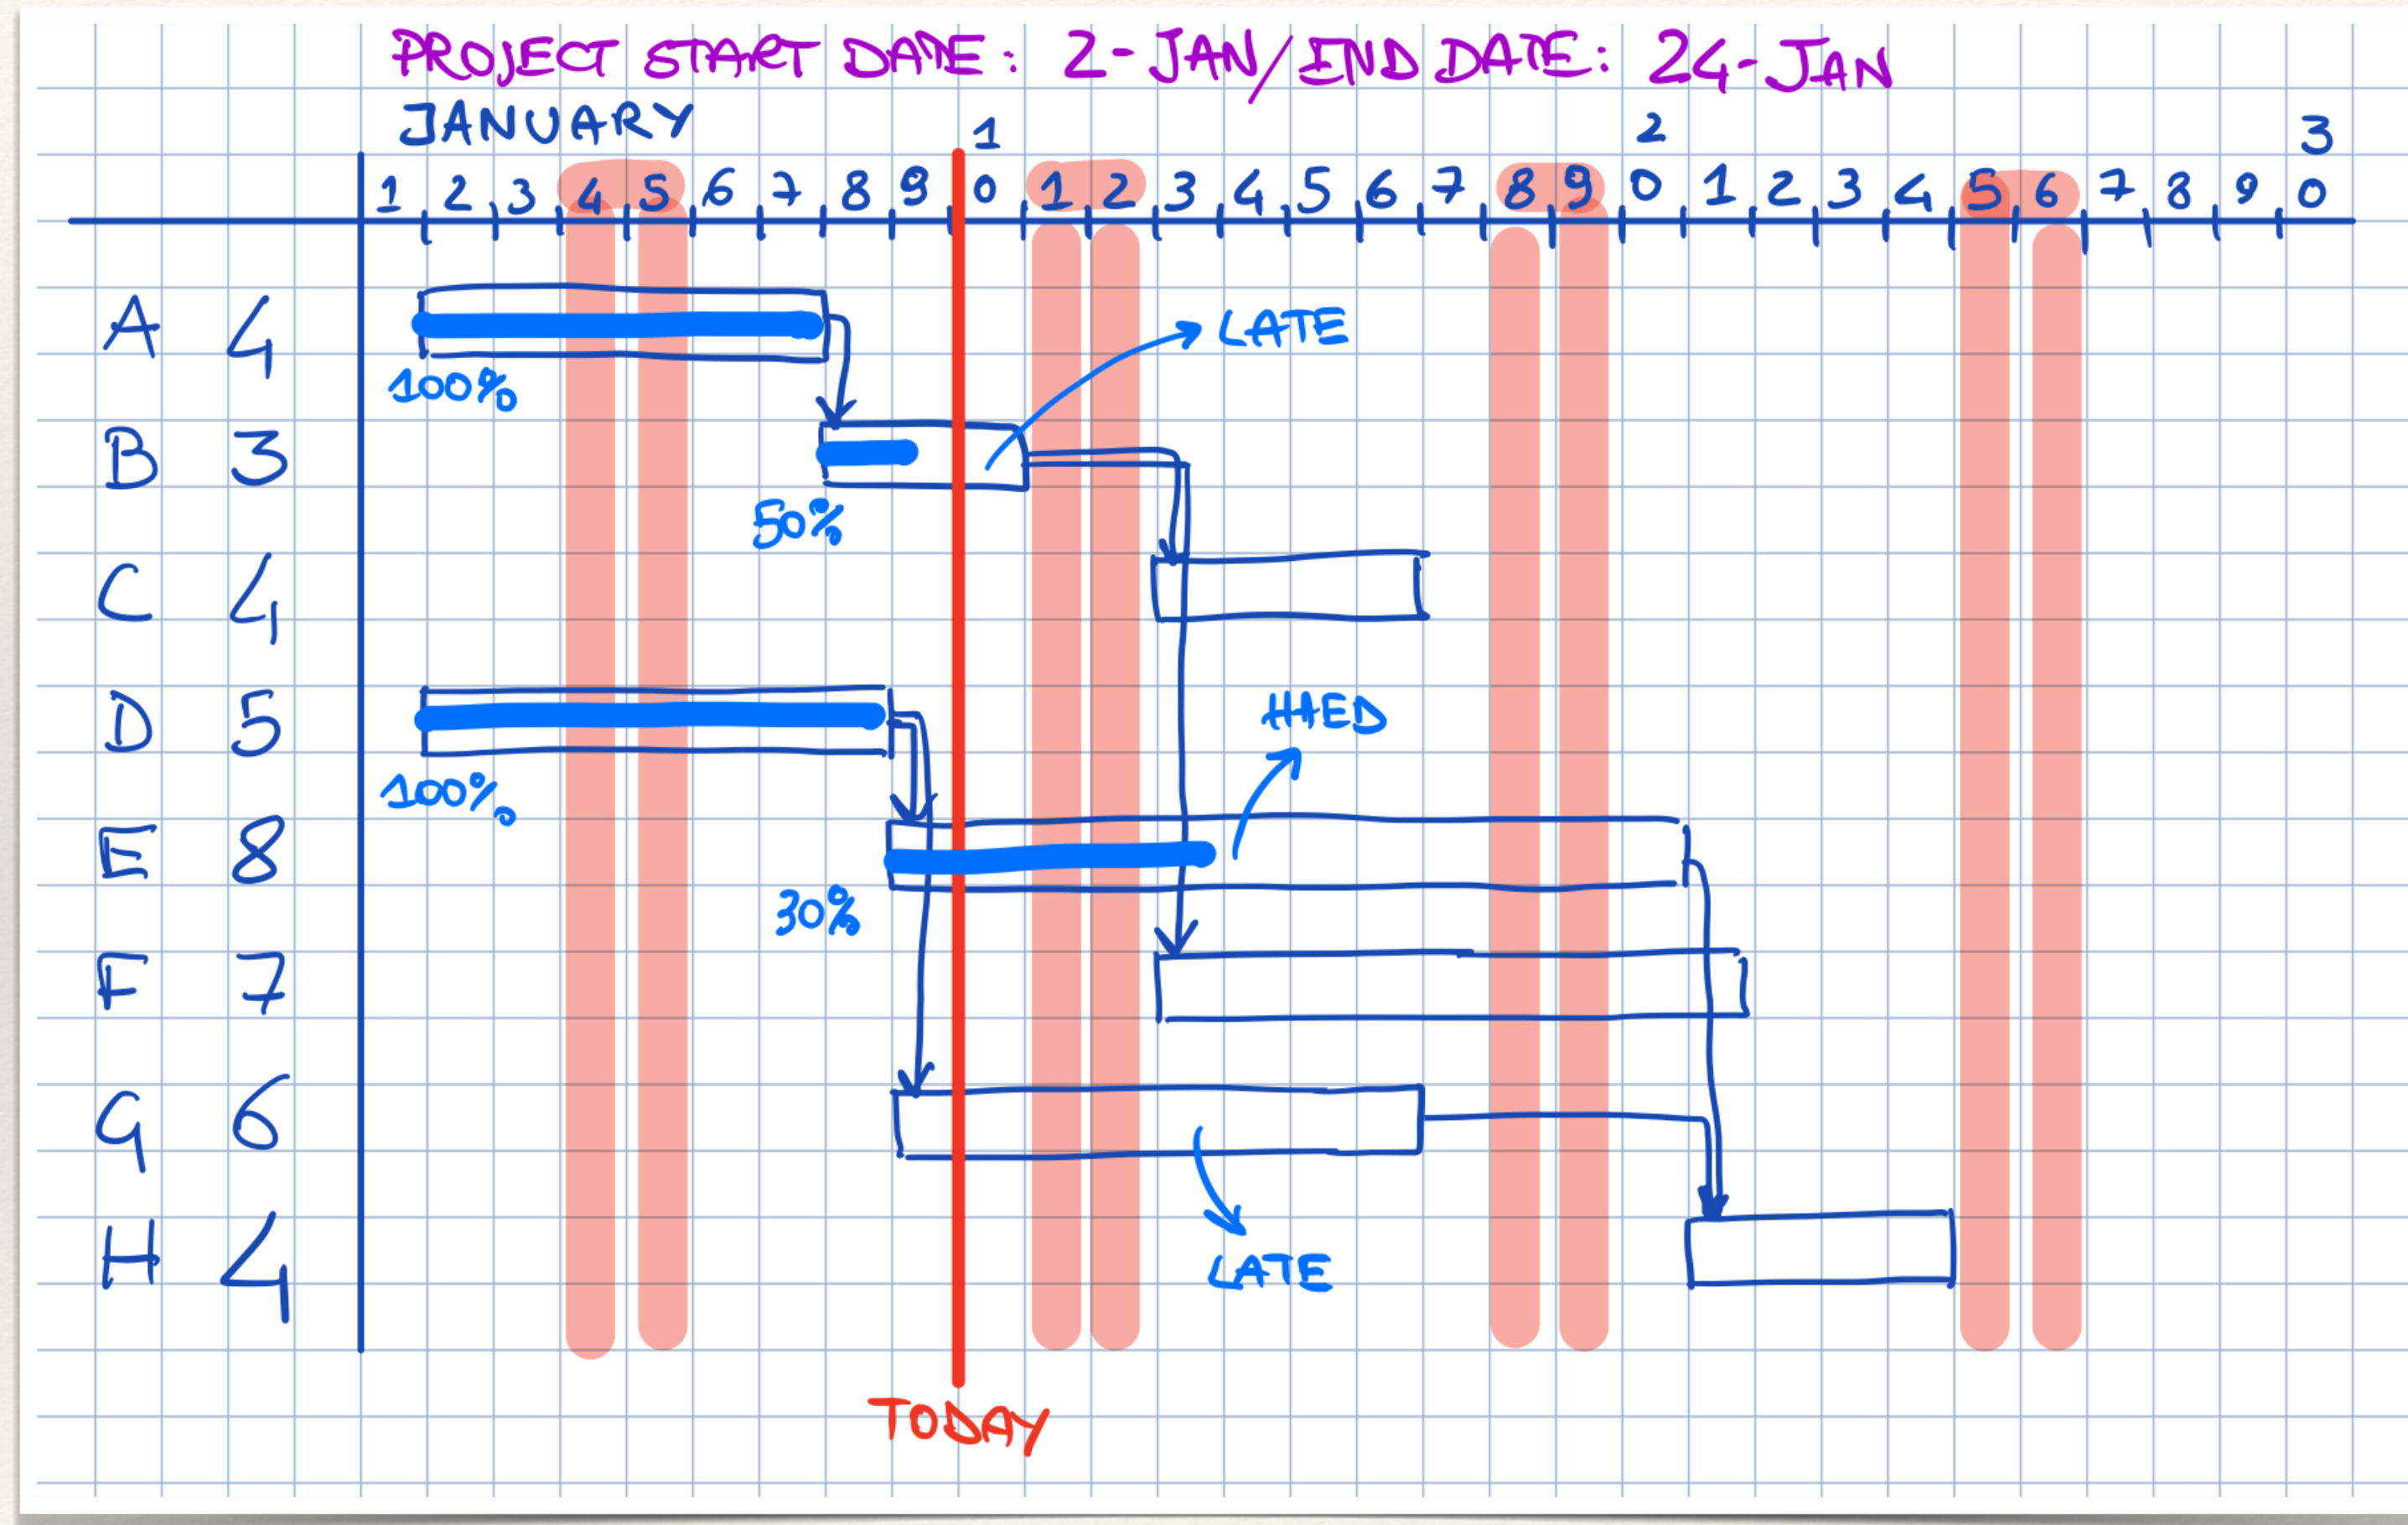 PROJECT START DATE: 2-JAN/END DATE: 24-JAN
JANUARY
1 2 3
1 2 3 4 5 6 7 8 9 0 1 2 3 4 5 6 7 8 9 0 1 2 3 4 5 6 7 8 9 0
A 4
LATE
100%
B 3
50%
C 4
D 5
100%
E 8
30%
F 7
G 6
H 4
LATE
TODAY